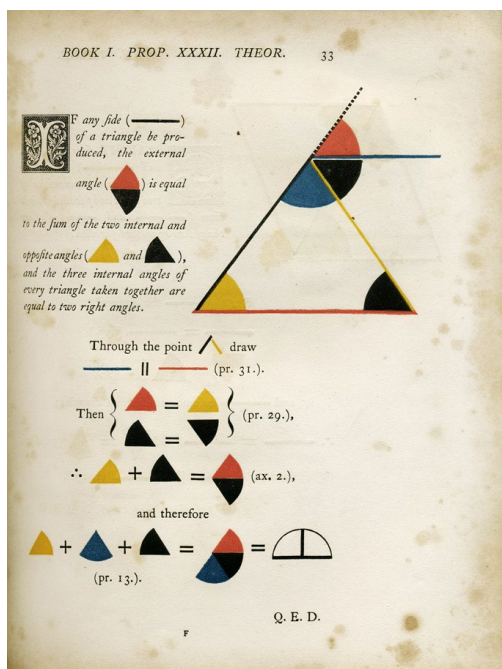 BOOK I. PROP. XXXII. THEOR.
33
IF any ſide ( )
of a triangle be pro-
duced, the external
angle ( ) is equal
to the ſum of the two internal and
oppoſite angles ( and ),
and the three internal angles of
every triangle taken together are
equal to two right angles.
Through the point draw
|| (pr. 31.).
Then { = } (pr. 29.),
=
∴ + = (ax. 2.),
and therefore
+ + = =
(pr. 13.).
Q. E. D.
F